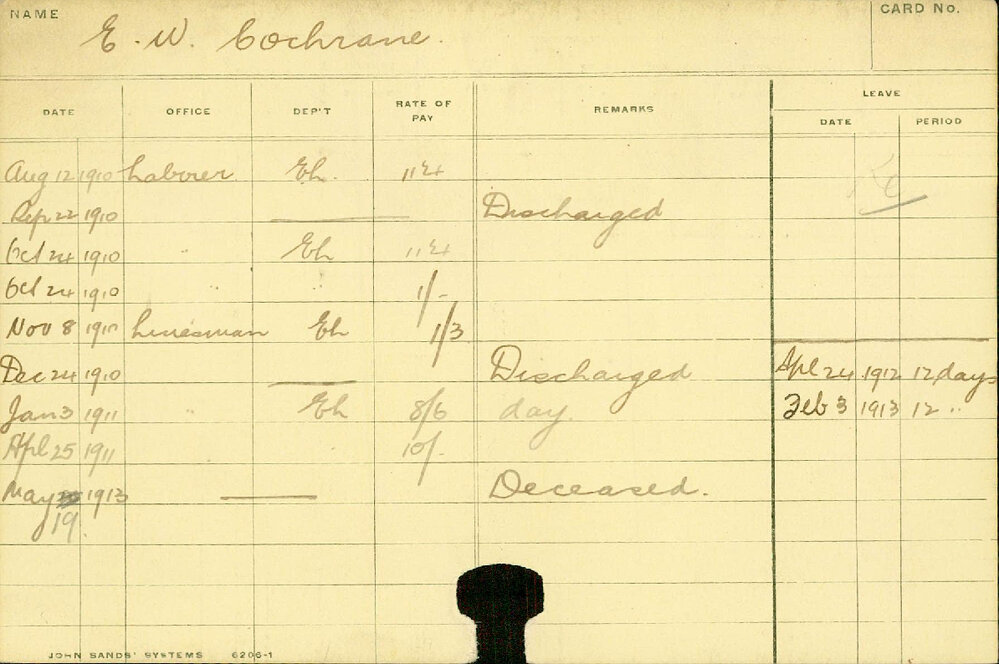 NAME E. W. Cochrane. CARD No.
LEAVE
DATE OFFICE DEP'T RATE OF PAY REMARKS DATE PERIOD
Aug 12 1910 Laborer Eh. 11¼
Sep 22 1910 Discharged
Oct 24 1910 " Eh 11¼
Oct 24 1910 " " 1/-
Nov 8 1910 Linesman Eh 1/3
Dec 24 1910 Discharged Apl 24 1912 12 days
Jan 3 1911 " Eh 8/6 day. Feb 3 1913 12 "
Apl 25 1911 10/-
May 1913 Deceased.
19.
JOHN SANDS' SYSTEMS 6206-1